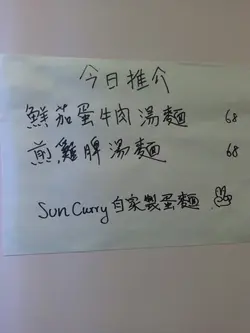 今日推介
鮮茄蛋牛肉湯麵 68
煎雞脾湯麵 68
Sun Curry 自家製蛋麵